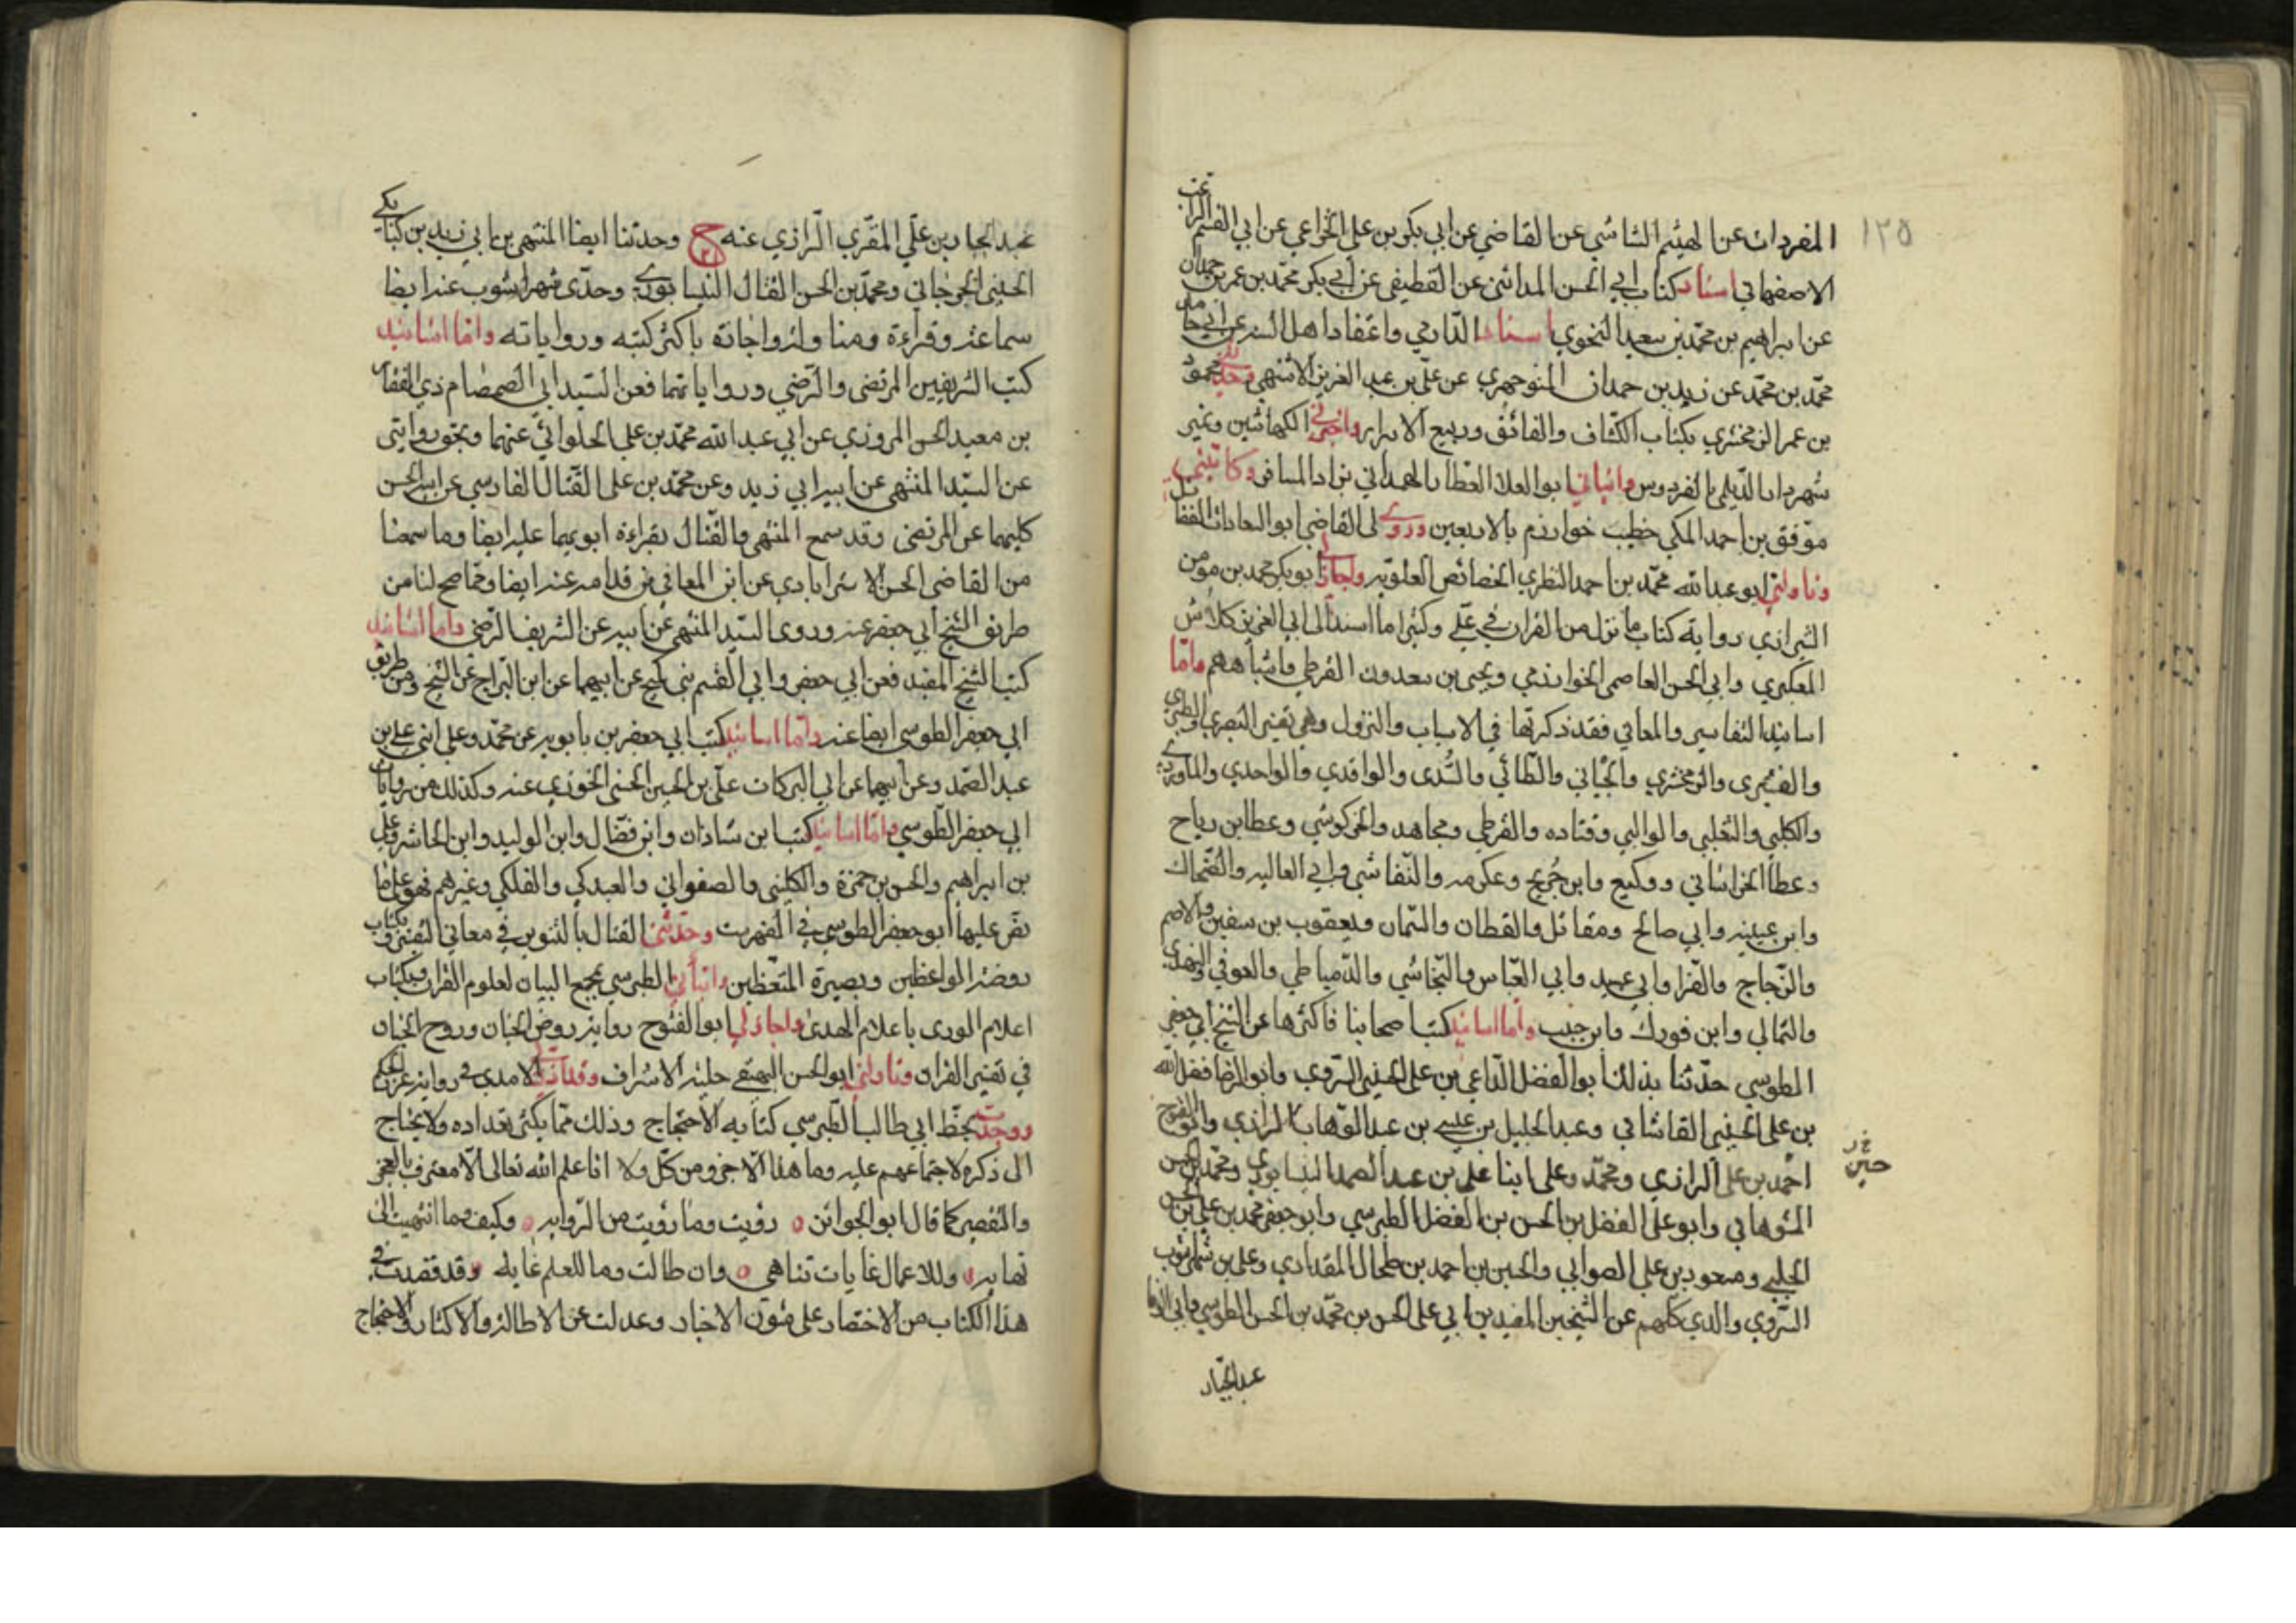 ١٢٥
المفردات عن الهيثم الشاشي عن القاضي عن ابي بكر بن علي الخزاعي عن ابي القسم الراغب
الاصفهاني اسناد كتاب ابي الحسن المدائني عن القطيفي عن ابي بكر محمد بن عمر بن حمدان
عن ابراهيم بن محمد بن سعيد النحوي اسناد الدارمي واعتقاد اهل السنه عن ابي حامد
محمد بن محمد عن زيد بن حمدان المنوجهري عن علي بن عبد العزيز الاشنهي وحدثني محمود
بن عمر الزمخشري بكتاب الكشاف والفائق وربيع الابرار واخبرني الكهاشين وغير
شهردار الديلمي بالفردوس وانباني ابو العلا العطار الهمداني بزاد المسافر وكاتبني
موفق بن احمد المكي خطيب خوارزم بالاربعين وروى لي القاضي ابو السعادات الفضائل
وناولني ابو عبد الله محمد بن احمد النطنزي الخصائص العلويه واجازلي ابو بكر محمد بن مؤمن
الشيرازي روايه كتاب ما نزل من القران في علي وكثيرا ما اسند الى ابي العزيز كلاش
العكبري وابي الحسن العاصمي الخوارزمي ويحيى بن سعدون القرطبي واشباههم واما
اسانيد التفاسير والمعاني فقد ذكرتها في الاسباب والنزول وهي تفسير البصري والطبري
والقشيري والزمخشري والجبائي والطائي والسدى والواقدي والواحدي والماوردي
والكلبي والثعلبي والوالبي وقتاده والقرطبي ومجاهد والخركوشي وعطا بن رباح
وعطا الخراساني ووكيع وابن جريج وعكرمه والنقاشي وابي العاليه والضحاك
وابن عيينه وابي صالح ومقاتل والقطان والسمان ويعقوب بن سفين والاصم
والزجاج والفرا وابي عبيد وابي العباس والنجاشي والدمياطي والعوفي والنهدي
والثمالي وابن فورك وابن حبيب واما اسانيد كتب اصحابنا فاكثرها عن الشيخ ابي جعفر
الطوسي حدثنا بذلك ابو الفضل الداعي بن علي الحسيني السروي وابو الرضا فضل الله
بن علي الحسيني القاشاني وعبد الجليل بن عيسى بن عبد الوهاب الرازي وابو الفتوح
احمد بن علي الرازي ومحمد وعلى ابنا علي بن عبد الصمد النيسابوري ومحمد بن الحسن
الشوهاني وابو علي الفضل بن الحسن بن الفضل الطبرسي وابو جعفر محمد بن علي بن الحسن
الحلبي ومسعود بن علي الصوابي والحسين بن احمد بن طحال المقدادي وعلي بن شهراشوب
السروي والدي كلهم عن الشيخين المفيدين ابي علي الحسن بن محمد بن الحسن الطوسي وابي الوفا
حسين
عبد الجبار
عبد الجبار بن علي المقري الرازي عنه ح وحدثنا ايضا المنتهي بن ابي زيد بن كبابكي
الحسيني الجرجاني ومحمد بن الحسن الفتال النيسابوري وحدي شهراشوب عنه ايضا
سماعة وقراءة ومناولة واجازة باكثر كتبه ورواياته واما اسانيد
كتب الشريفين المرتضى والرضي ورواياتهما فعن السيد ابي الصمصام ذي الفقار
بن معبد الحسني المروزي عن ابي عبد الله محمد بن علي الحلوائي عنهما وبحق روايتي
عن السيد المنتهي عن ابيه ابي زيد وعن محمد بن علي الفتال الفارسي عن ابيه الحسن
كليهما عن المرتضى وقد سمع المنتهي والفتال بقراءة ابويهما عليه ايضا وما سمعنا
من القاضي الحسن الاسترابادي عن ابن المعافي بن قدامه عنه ايضا ومما صح لنا من
طريق الشيخ ابي جعفر عنه وروى السيد المنتهي عن ابيه عن الشريف الرضي واما اسانيد
كتب الشيخ المفيد فعن ابي جعفر وابي القسم بني كميح عن ابيهما عن ابن البراج عن الشيخ ومن طريق
ابي جعفر الطوسي ايضا عنه واما اسانيد كتب ابي جعفر بن بابويه عن محمد وعلي ابني علي بن
عبد الصمد وعن ابيهما عن ابي البركات علي بن الحسين الحسني الخوزي عنه وكذلك من روايات
ابي جعفر الطوسي واما اسانيد كتب ابن شاذان وابن فضال وابن الوليد وابن الحاشر وعلي
بن ابراهيم والحسن بن حمزة والكليني والصفواني والعبدكي والفلكي وغيرهم فهو على ما
نص عليها ابو جعفر الطوسي في الفهرست وحدثني الفتال بالتنوير في معاني التفسير وبكتاب
روضة الواعظين وبصيرة المتعظين وانبأني الطبرسي بمجمع البيان لعلوم القران وبكتاب
اعلام الورى باعلام الهدى واجازلي ابو الفتوح رواية روض الجنان وروح الجنان
في تفسير القران وناولني ابو الحسن البيهقي حلية الاشراف وقد اذن لي الامدي في رواية غرر الحكم
ووجدت بخط ابي طالب الطبرسي كتابه الاحتجاج وذلك مما يكثر تعداده ولا يحتاج
الى ذكره لاجتماعهم عليه وما هذا الا جزو من كل ولا انا علم الله تعالى الا معترف بالعجز
والتقصير كما قال ابو الجوائز رؤيت وما رؤيت من الروايه وكيف وما انتهيت الى
نهايه وللاعمال غايات تناهى وان طالت وما للعلم غايه وقد قصدت في
هذا الكتاب من الاختصار على متون الاخبار وعدلت عن الاطالة والاكثار والاحتجاج